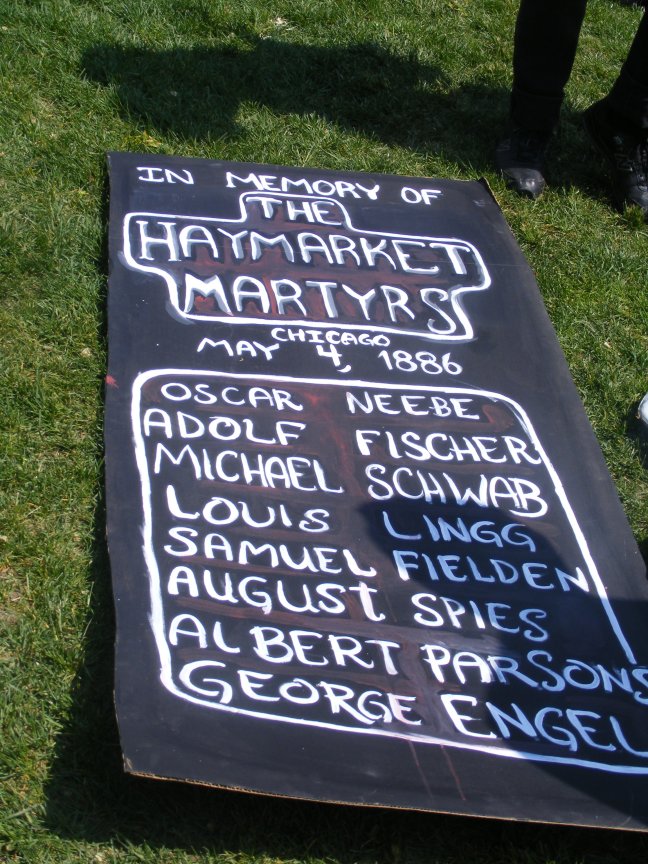 IN MEMORY OF
THE
HAYMARKET
MARTYRS
CHICAGO
MAY 4, 1886
OSCAR NEEBE
ADOLF FISCHER
MICHAEL SCHWAB
LOUIS LINGG
SAMUEL FIELDEN
AUGUST SPIES
ALBERT PARSONS
GEORGE ENGEL